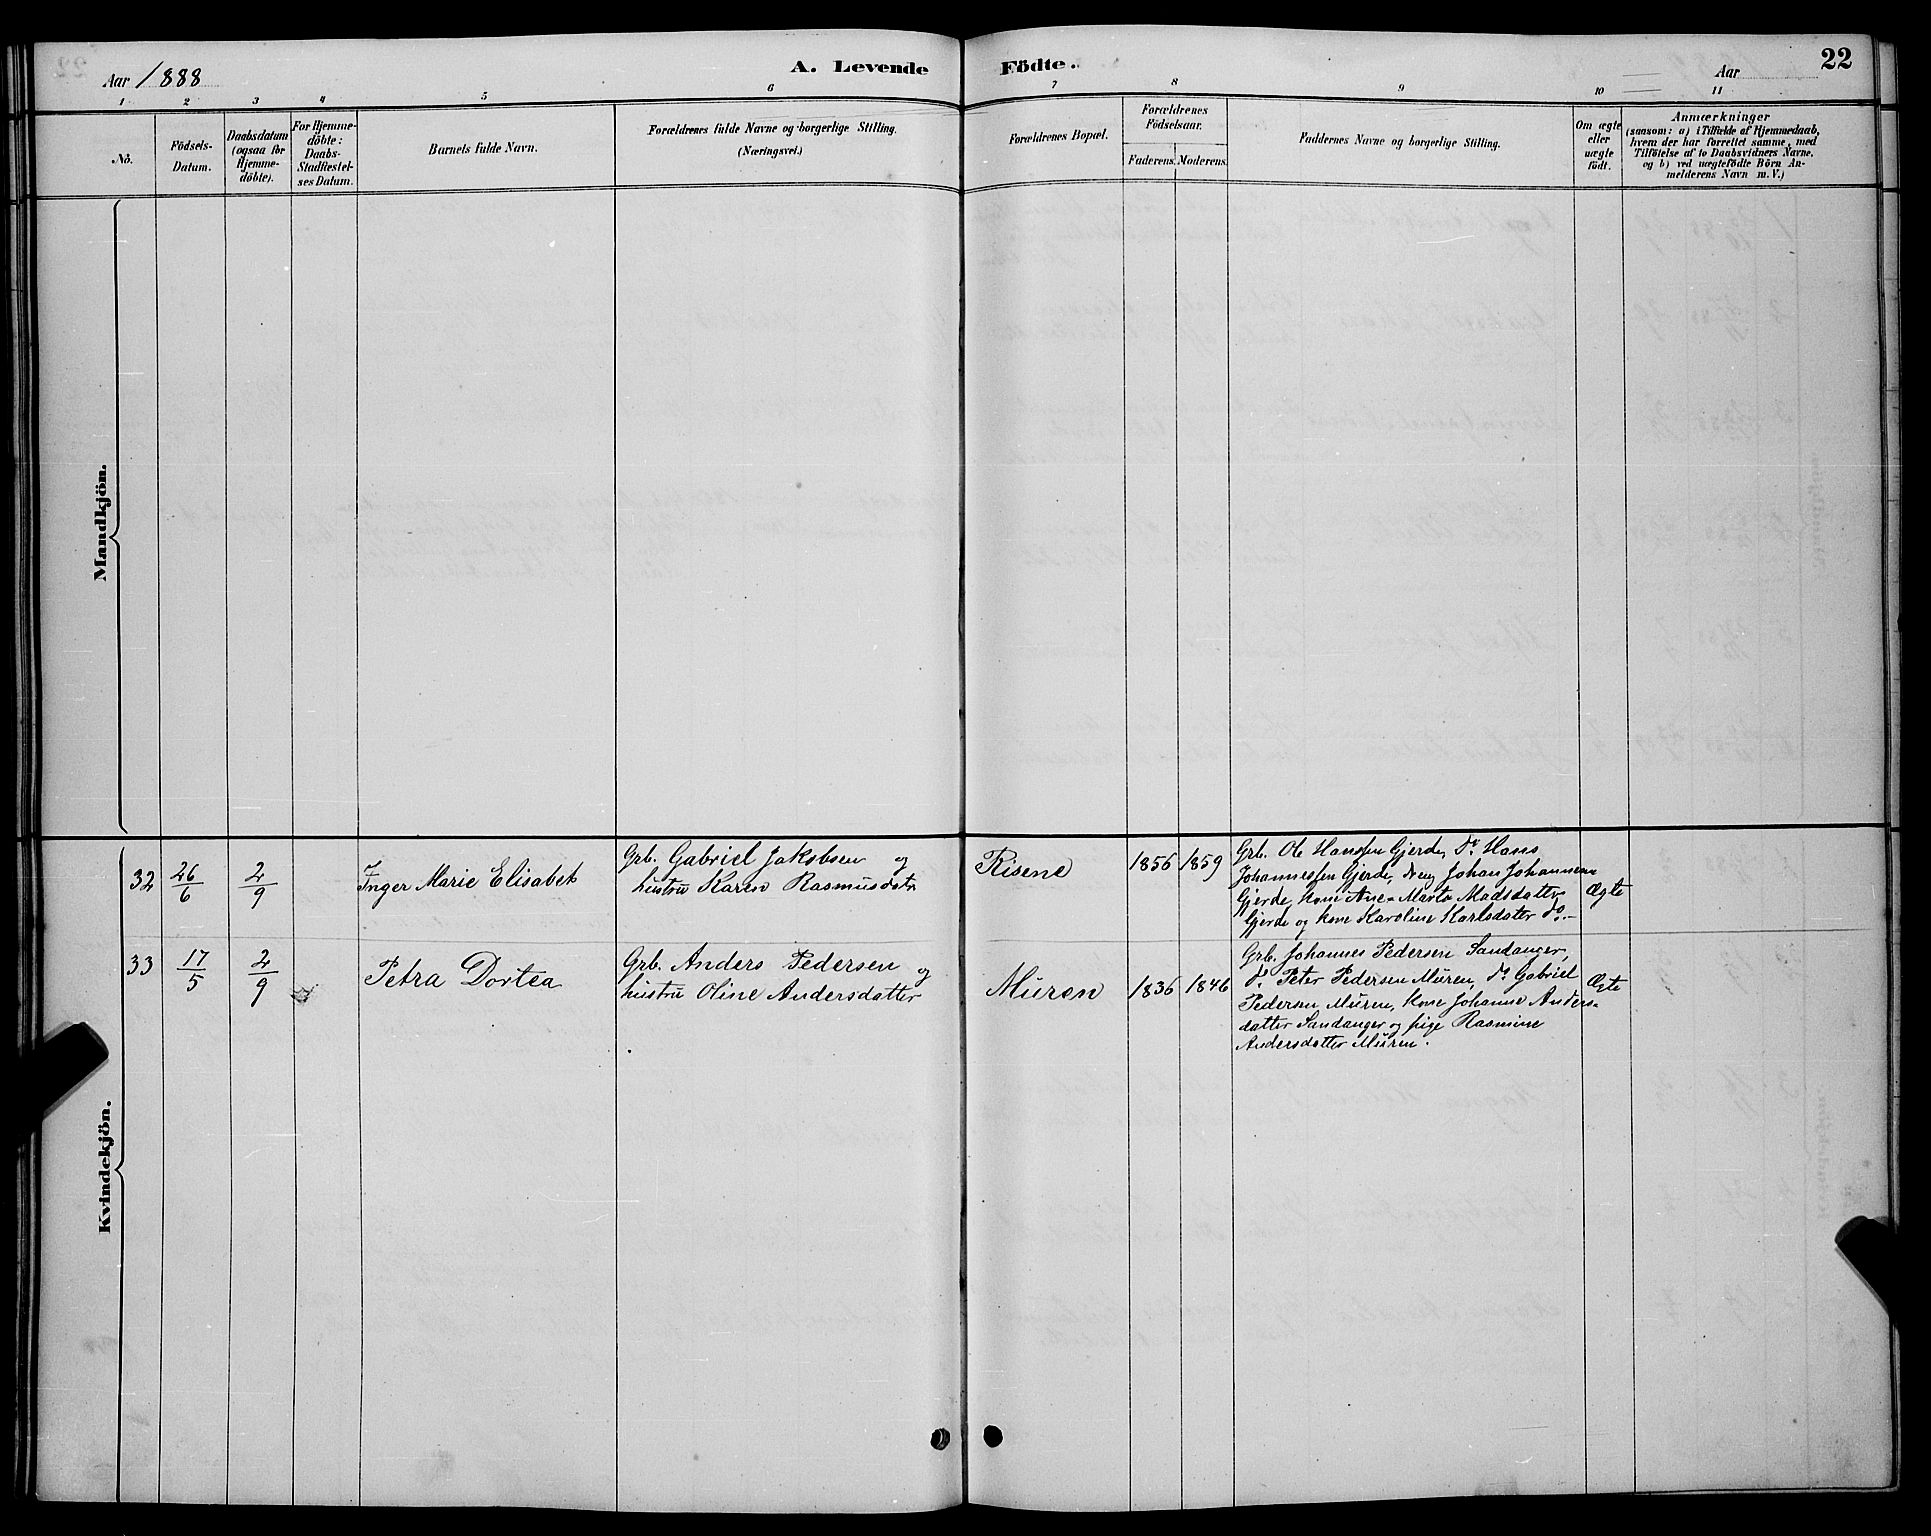 Aar 1888
A. Levende
Födte.
Aar
22
1
2
3
4
5
6
7
8
9
10
11
No.
Födsels-
Datum.
Daabsdatum
(ogsaa for
Hjemme-
döbte).
For Hjemme-
döbte:
Daabs-
Stadfæstel-
ses Datum.
Barnets fulde Navn.
Forældrenes fulde Navne og borgerlige Stilling.
(Næringsvei.)
Forældrenes Bopæl.
Forældrenes
Födselsaar.
Faderens.
Moderens.
Faddernes Navne og borgerlige Stilling.
Om ægte
eller
uægte
födt.
Anmærkninger
(saasom: a) i Tilfælde af Hjemmedaab,
hvem der har forrettet samme, med
Tilföielse af to Daabsvidners Navne,
og b) ved uægtefödte Börn An-
melderens Navn m. V.)
Mandkjön.
Kvindekjön.
32
26/6
2/9
Inger Marie Elisabet
Grb. Gabriel Jakobsen og
hustru Karen Rasmusdatr
Risene
1856
1859
Grb. Ole Hanssen Gjerde, do. Hans
Johannessen Gjerde, dreng Johan Johannesen
Gjerde, kone Ane-Marta Madsdatter
Gjerde og kone Karoline Karlsdater do.
Ægte
33
17/5
2/9
Petra Dortea
Grb. Anders Pedersen og
hustru Oline Andersdatter
Muren
1836
1846
Grb. Johannes Pedersen Sandanger,
do. Peter Pedersen Muren, do. Gabriel
Pedersen Muren, kone Johanne Anders-
datter Sandanger og pige Rasmine
Andersdatter Muren.
Ægte